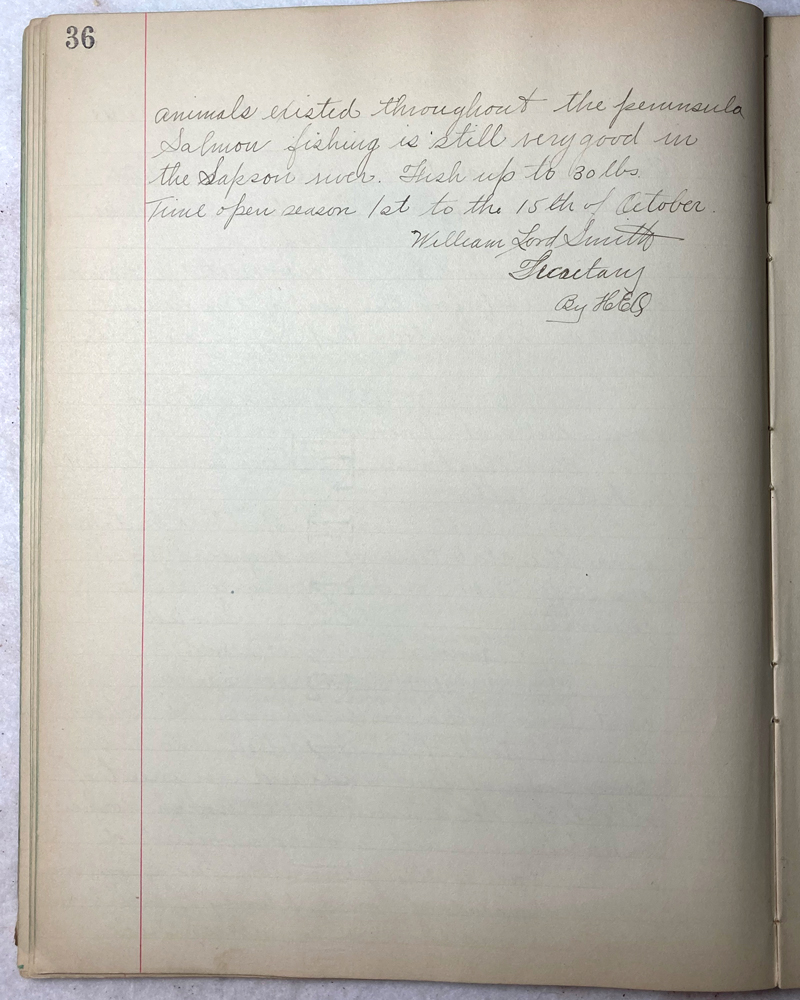 36
animals existed throughout the peninsula
Salmon fishing is still very good in
the Sapson river. Fish up to 30 lbs.
Time open season 1st to the 15th of October.
William Lord Smith
Secretary
By HEQ